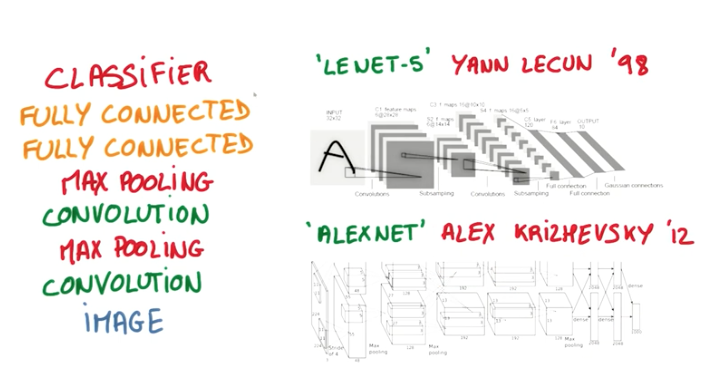 CLASSIFIER
FULLY CONNECTED
FULLY CONNECTED
MAX POOLING
CONVOLUTION
MAX POOLING
CONVOLUTION
iMAGE
'LENET-5' YANN LECUN '98
INPUT
32x32
C1: feature maps
6@28x28
C3: f. maps 16@10x10
S4: f. maps 16@5x5
S2: f. maps
6@14x14
C5: layer
120
F6: layer
84
OUTPUT
10
A
Convolutions
Subsampling
Convolutions
Subsampling
Full connection
Full connection
Gaussian connections
'ALEXNET' ALEX KRIZHEVSKY '12
Stride
of 4
Max
pooling
128
Max
pooling
192
192
128
Max
pooling
dense
dense
dense